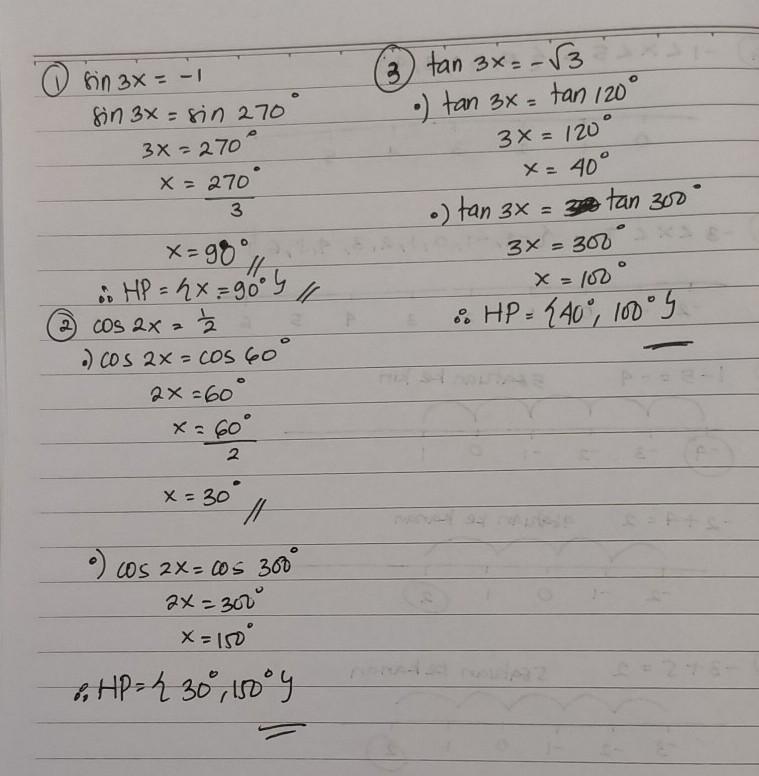 ① sin 3x = -1
sin 3x = sin 270°
3x = 270°
x = 270°
3
x = 90° //
∴ HP = {x = 90°} //
② cos 2x = 1/2
•) cos 2x = cos 60°
2x = 60°
x = 60°
2
x = 30° //
•) cos 2x = cos 300°
2x = 300°
x = 150°
∴ HP = { 30°, 150° }
③ tan 3x = -√3
•) tan 3x = tan 120°
3x = 120°
x = 40°
•) tan 3x = tan 300°
3x = 300°
x = 100°
∴ HP = {40°, 100° }